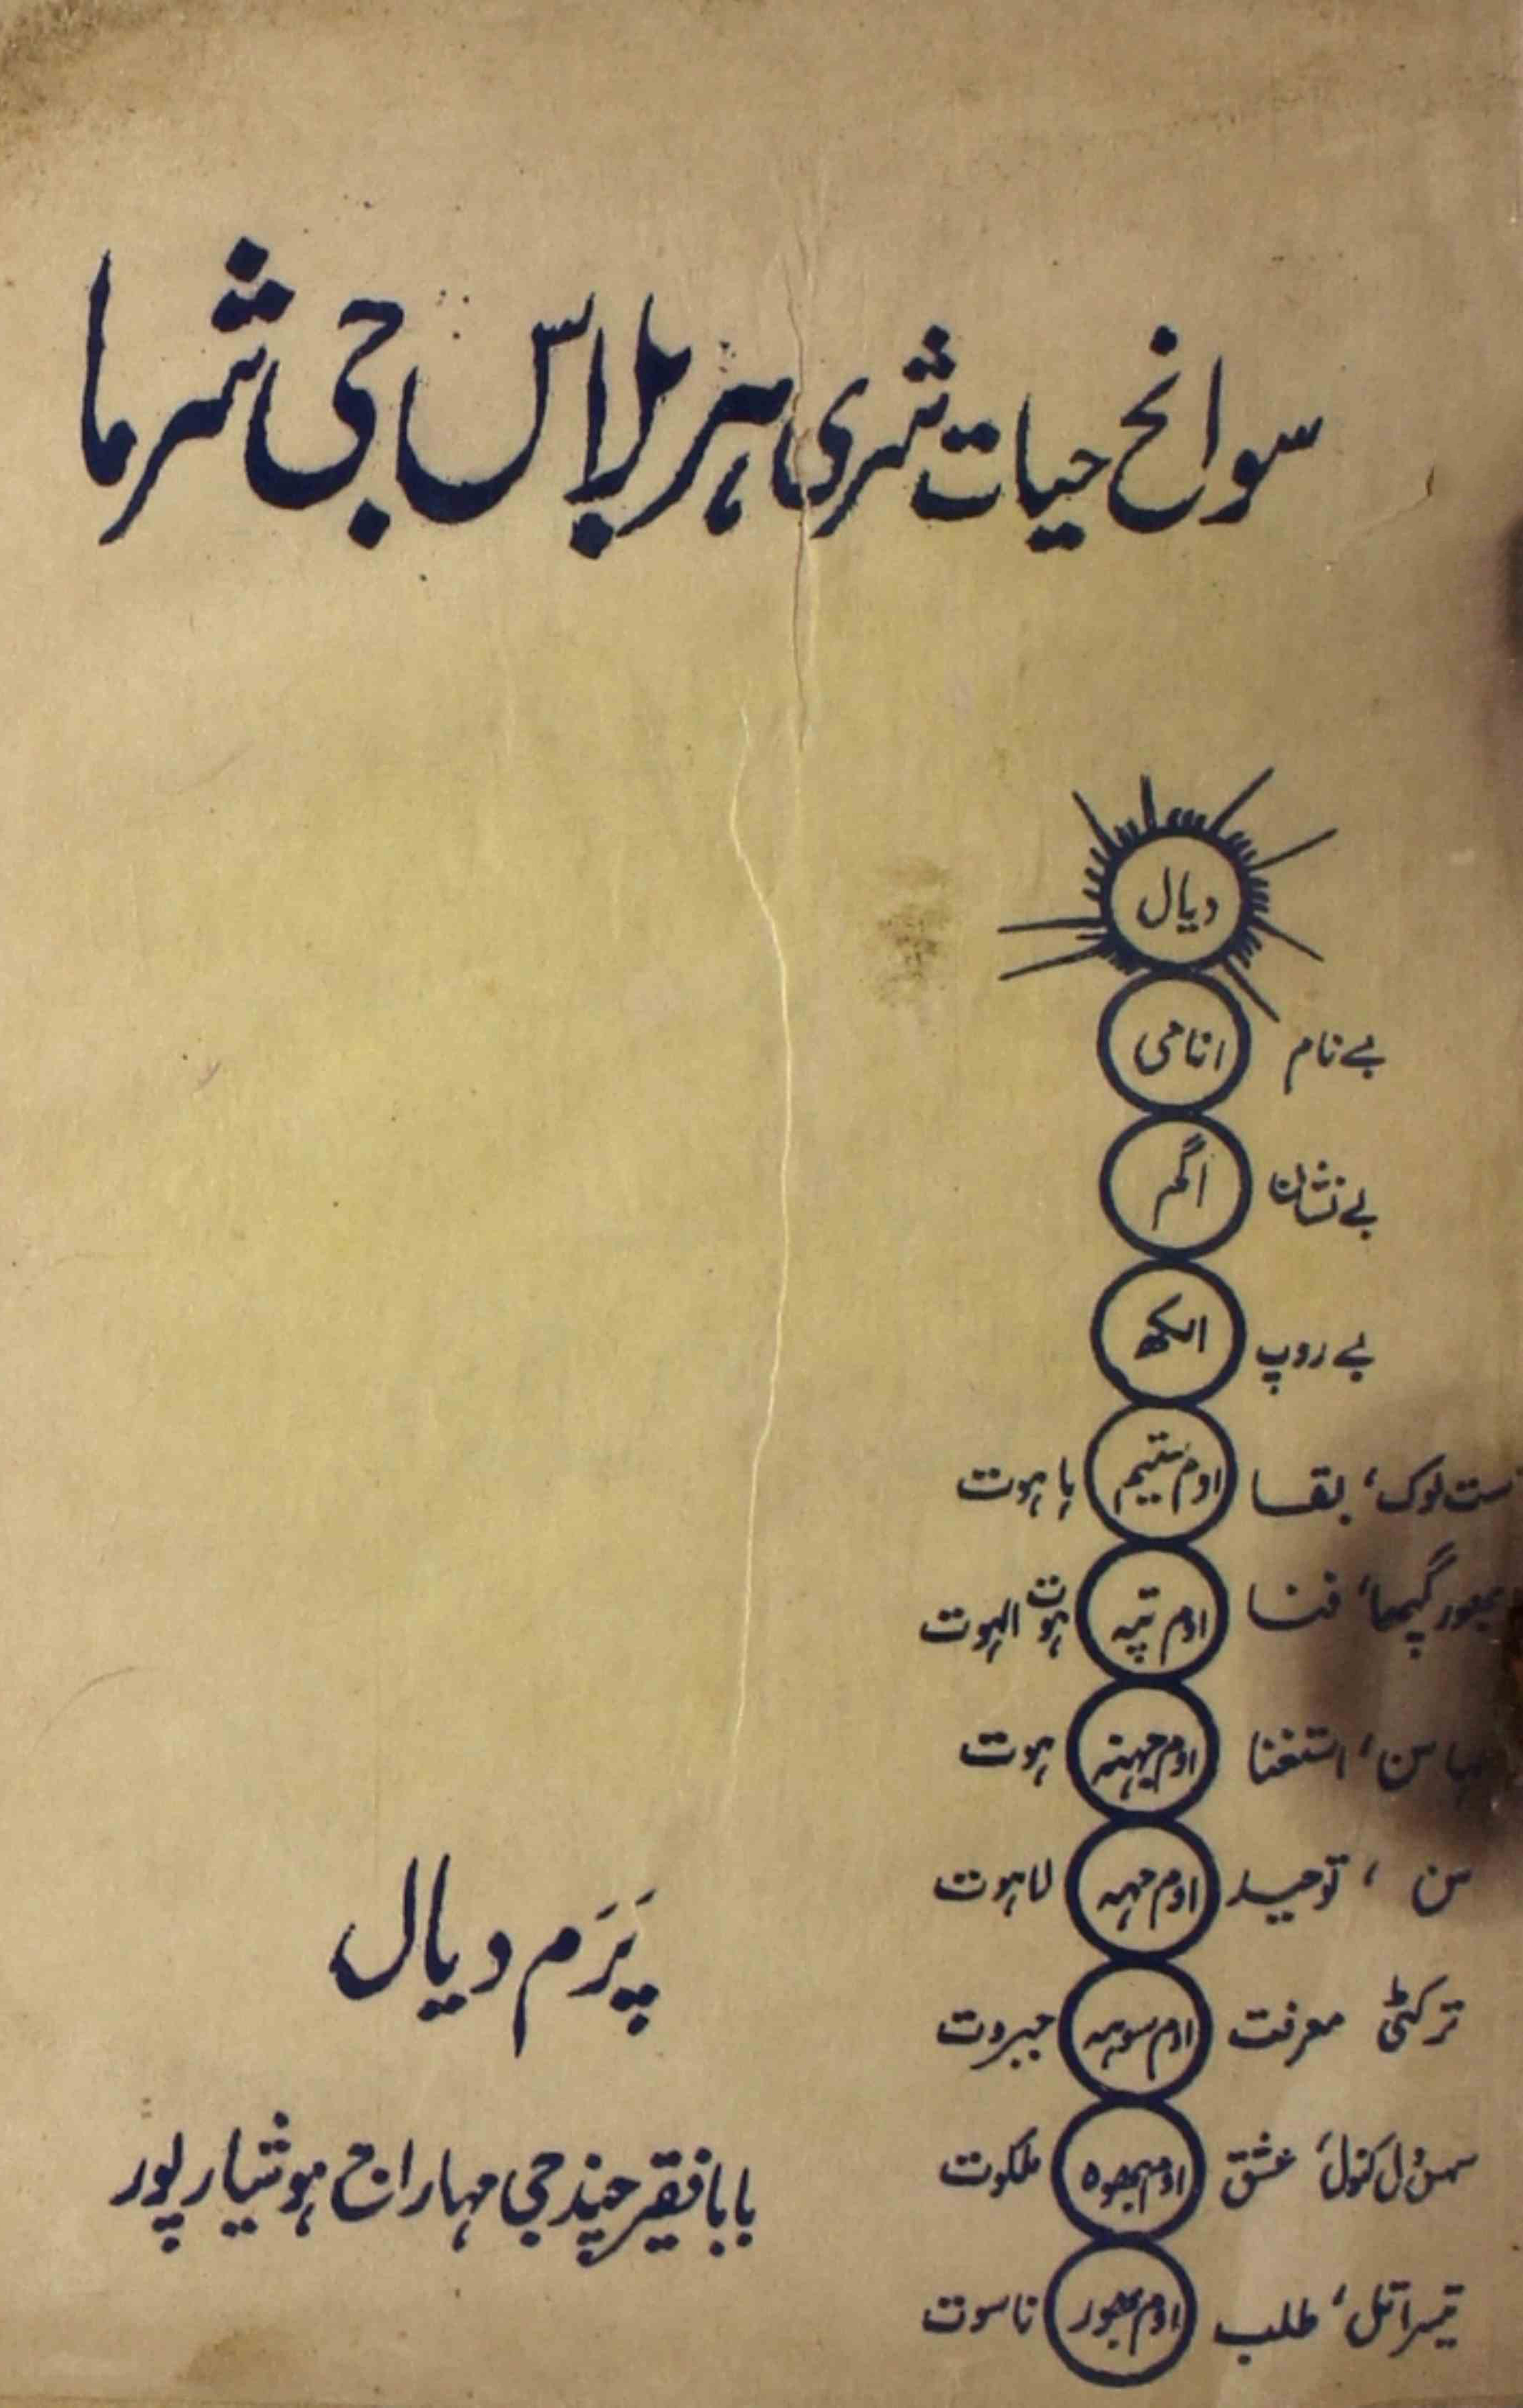 سوانح حیات شری ہر بلاس جی شرما
دیال
بے نام انامی
بے نشان اگم
بے روپ الکھ
ست لوک، بقا اوم ستیم ہاہوت
گپھا، فنا اوم تپہ ہوت الہوت
سن، استغنا اوم جہنہ ہوت
سن، توحید اوم مہہ لاہوت
ترکٹی معرفت اوم سوہہ جبروت
سہس دل کنول، عشق اوم بھوہ ملکوت
تیسرا تل، طلب اوم بھور ناسوت
پَرَم دیال
بابا فقیر چند جی مہاراج ہوشیار پور